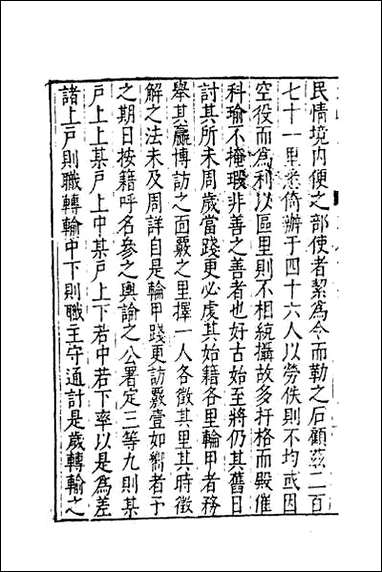 民情境内便之部使者絜為令而勒之石顧茲二百
七十一里悉倚辦于四十六人以勞佚則不均或因
空役而為利以區里則不相統攝故多扞格而殿催
科瑜不掩瑕非善之善者也好古始至將仍其舊日
討其所未周歲當踐更必虔其始籍各里輪甲者務
舉其贏博訪之面覈之里擇一人各徵其里其時徵
解之法未及周詳自是輪甲踐更訪覈壹如嚮者于
之期日按籍呼名參之輿論之公署定三等九則某
戶上上某戶上中某戶上下若中若下率以是為差
諸上戶則職轉輸中下則職主守通計是歲轉輸之